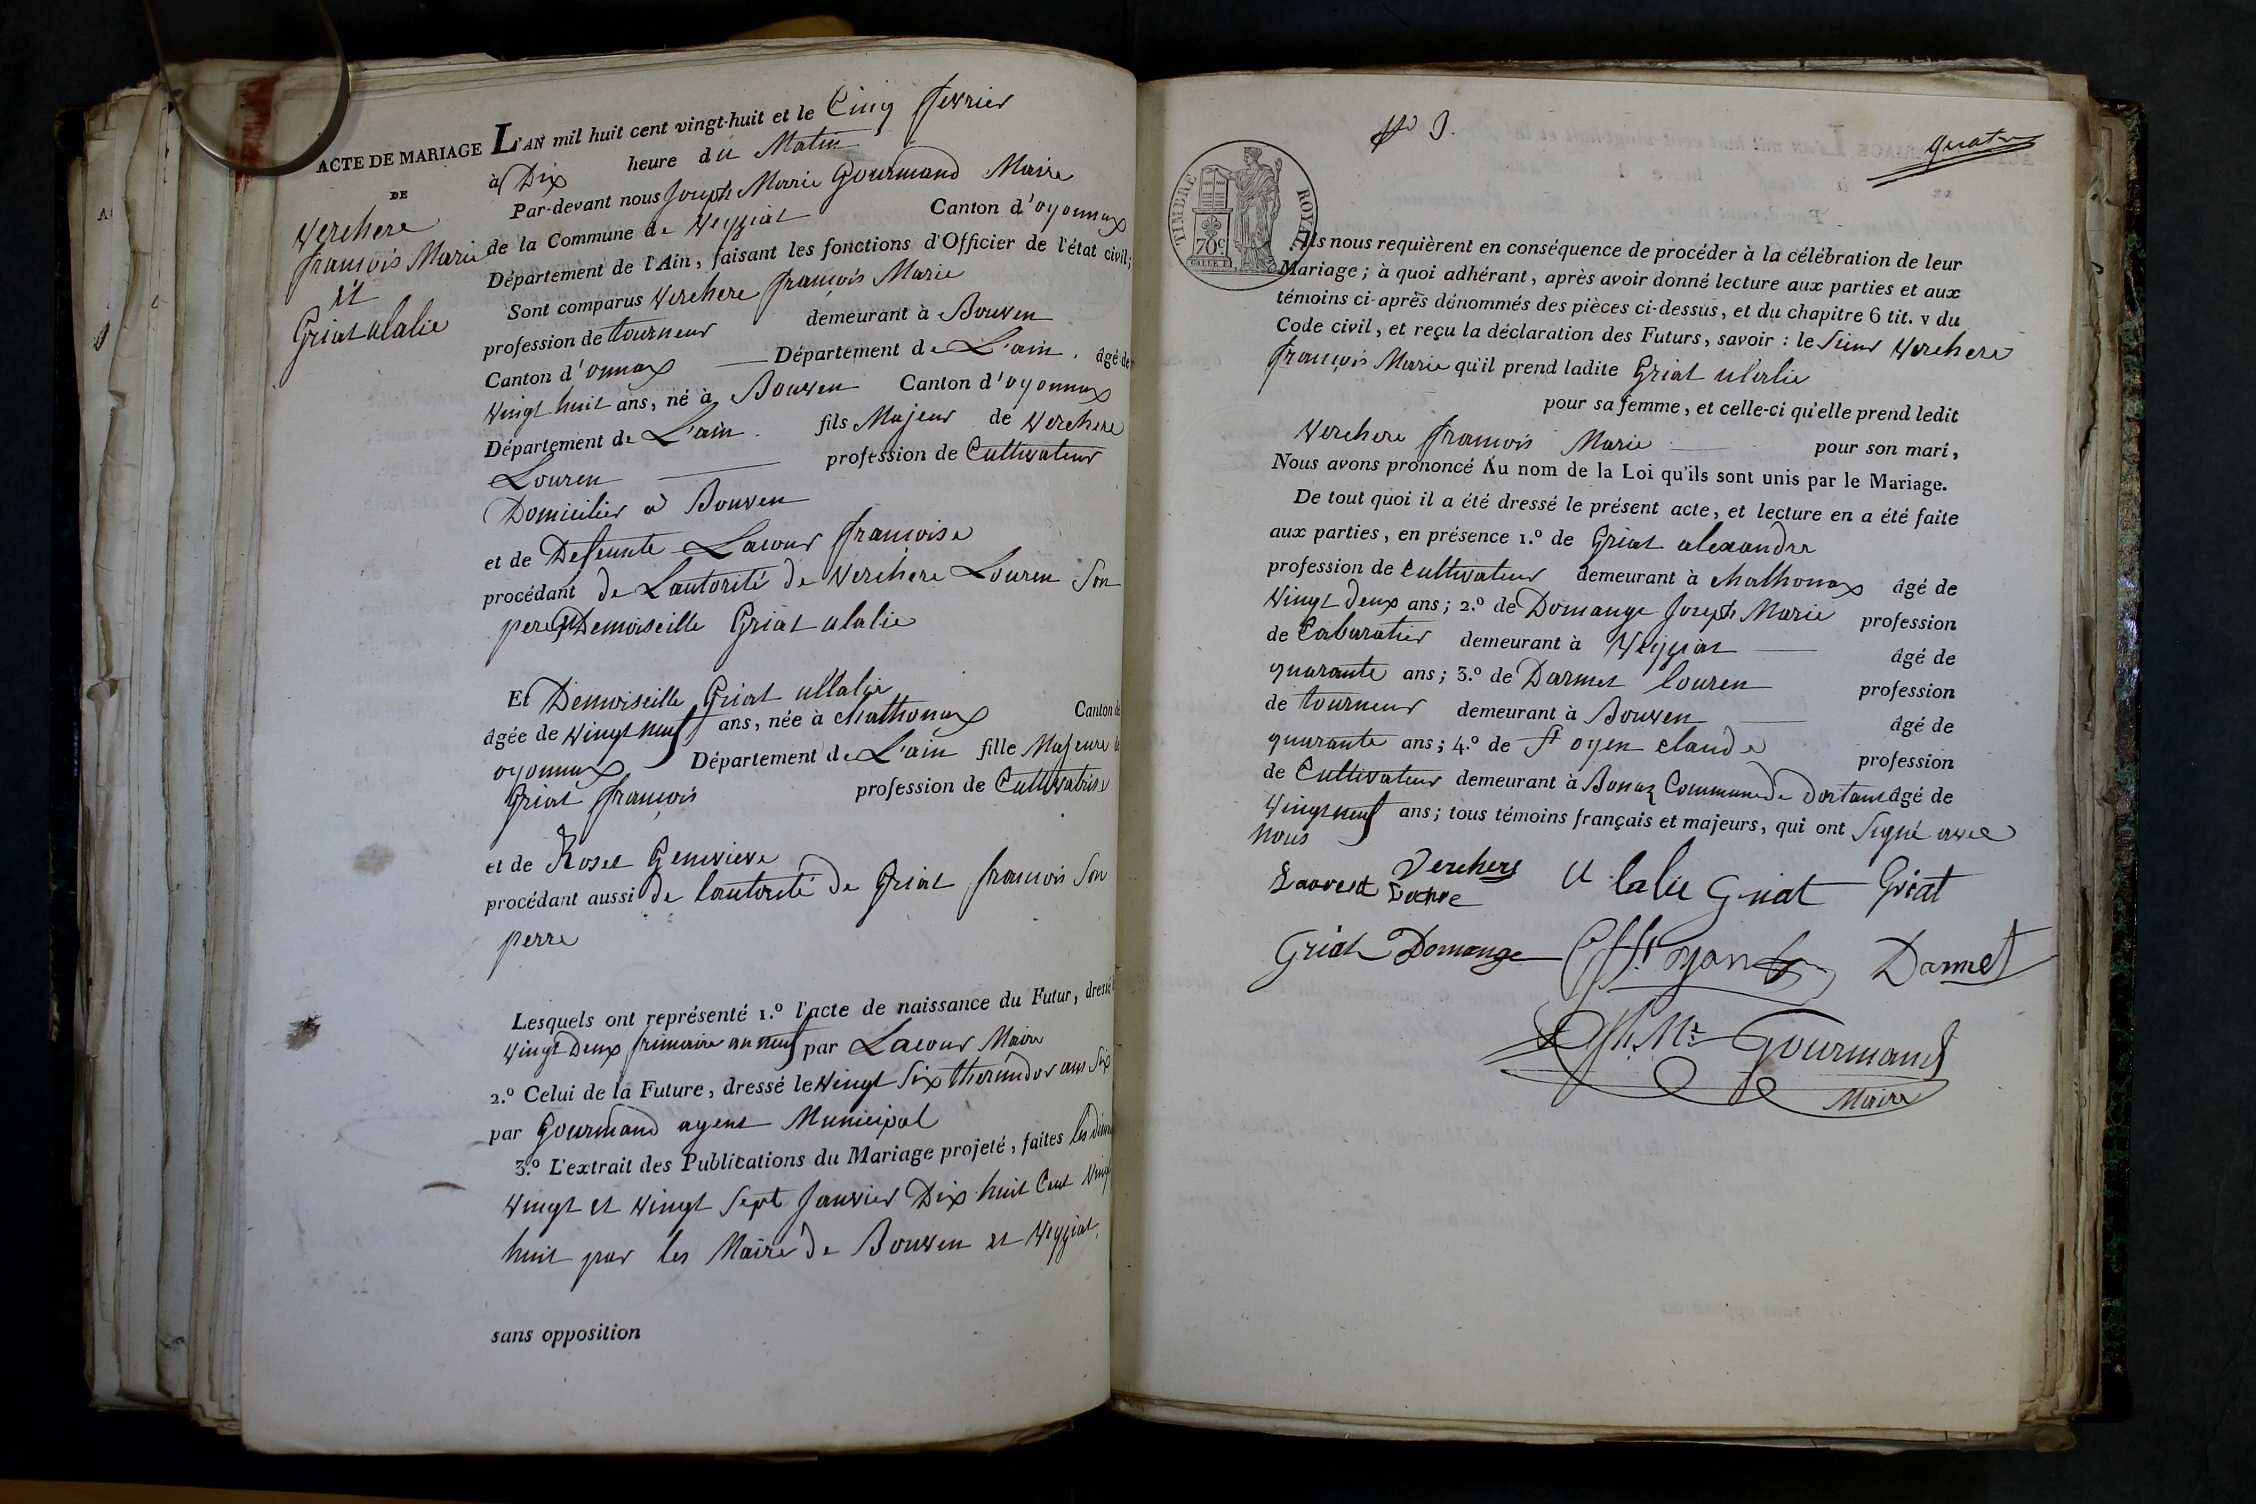 ACTE DE MARIAGE
DE
Verchere
françois Marie
Et
Griat ulalie
L'AN mil huit cent vingt-huit et le Cinq fevrier
à Dix heure du Matin
Par-devant nous Joseph Marie Gourmand Maire
de la Commune de Veyziat Canton d'oyonnax
Département de l'Ain, faisant les fonctions d'Officier de l'état civil;
Sont comparus Verchere françois Marie
profession de tourneur demeurant à Bouven
Canton d'onnax Département de L'ain. âgé de
Vingt huit ans, né à Bouven Canton d'oyonnax
Département de L'ain. fils Majeur de Verchere
Louren profession de Cultivateur
Domicilier a Bouven
et de Defeunte Lacour francoise
procédant de Lautorité de Verchere Louren Son
pere et Demoiseille Griat ulalie
Et Demoiseille Griat ullalie
âgée de Vingt neuf ans, née à Chathonax Canton de
oyonnax Département de L'ain fille Majeure de
Griat françois profession de Cultivatrise
et de Roset Genevieve
procédant aussi de lautorité de Griat francois Son
perre
Lesquels ont représenté 1.º l'acte de naissance du Futur, dressé
Vingt Deux frimaire an neuf par Lacour Maire
2.º Celui de la Future, dressé le Vingt Six thermidor ans Six
par Gourmand agent Municipal
3.º L'extrait des Publications du Mariage projeté, faites les
Vingt et Vingt Sept Janvier Dix huit Cent Vingt
huit par les Maire de Bouven et Veyziat.
sans opposition
quatre
TIMBRE ROYAL
70 c
Ils nous requièrent en conséquence de procéder à la célébration de leur
Mariage; à quoi adhérant, après avoir donné lecture aux parties et aux
témoins ci-après dénommés des pièces ci-dessus, et du chapitre 6 tit. v du
Code civil, et reçu la déclaration des Futurs, savoir : le Sieur Verchere
françois Marie qu'il prend ladite Griat ulalie
pour sa femme, et celle-ci qu'elle prend ledit
Verchere francois Marie pour son mari,
Nous avons prononcé Au nom de la Loi qu'ils sont unis par le Mariage.
De tout quoi il a été dressé le présent acte, et lecture en a été faite
aux parties, en présence 1.º de Griat alexandre
profession de Cultivateur demeurant à chathonax âgé de
Vingt deux ans; 2.º de Domange Joseph Marie profession
de Cabaratier demeurant à Veyziat âgé de
quarante ans; 3.º de Darmet louren profession
de tourneur demeurant à Bouven âgé de
quarante ans; 4.º de St oyen claude profession
de Cultivateur demeurant à Bonaz Commune de dortans âgé de
Vingt neuf ans; tous témoins français et majeurs, qui ont Signé avec
nous
Verchere U lalie Griat Griat
Griat Domange Darmet
Jh. Mie Gourmand
Maire